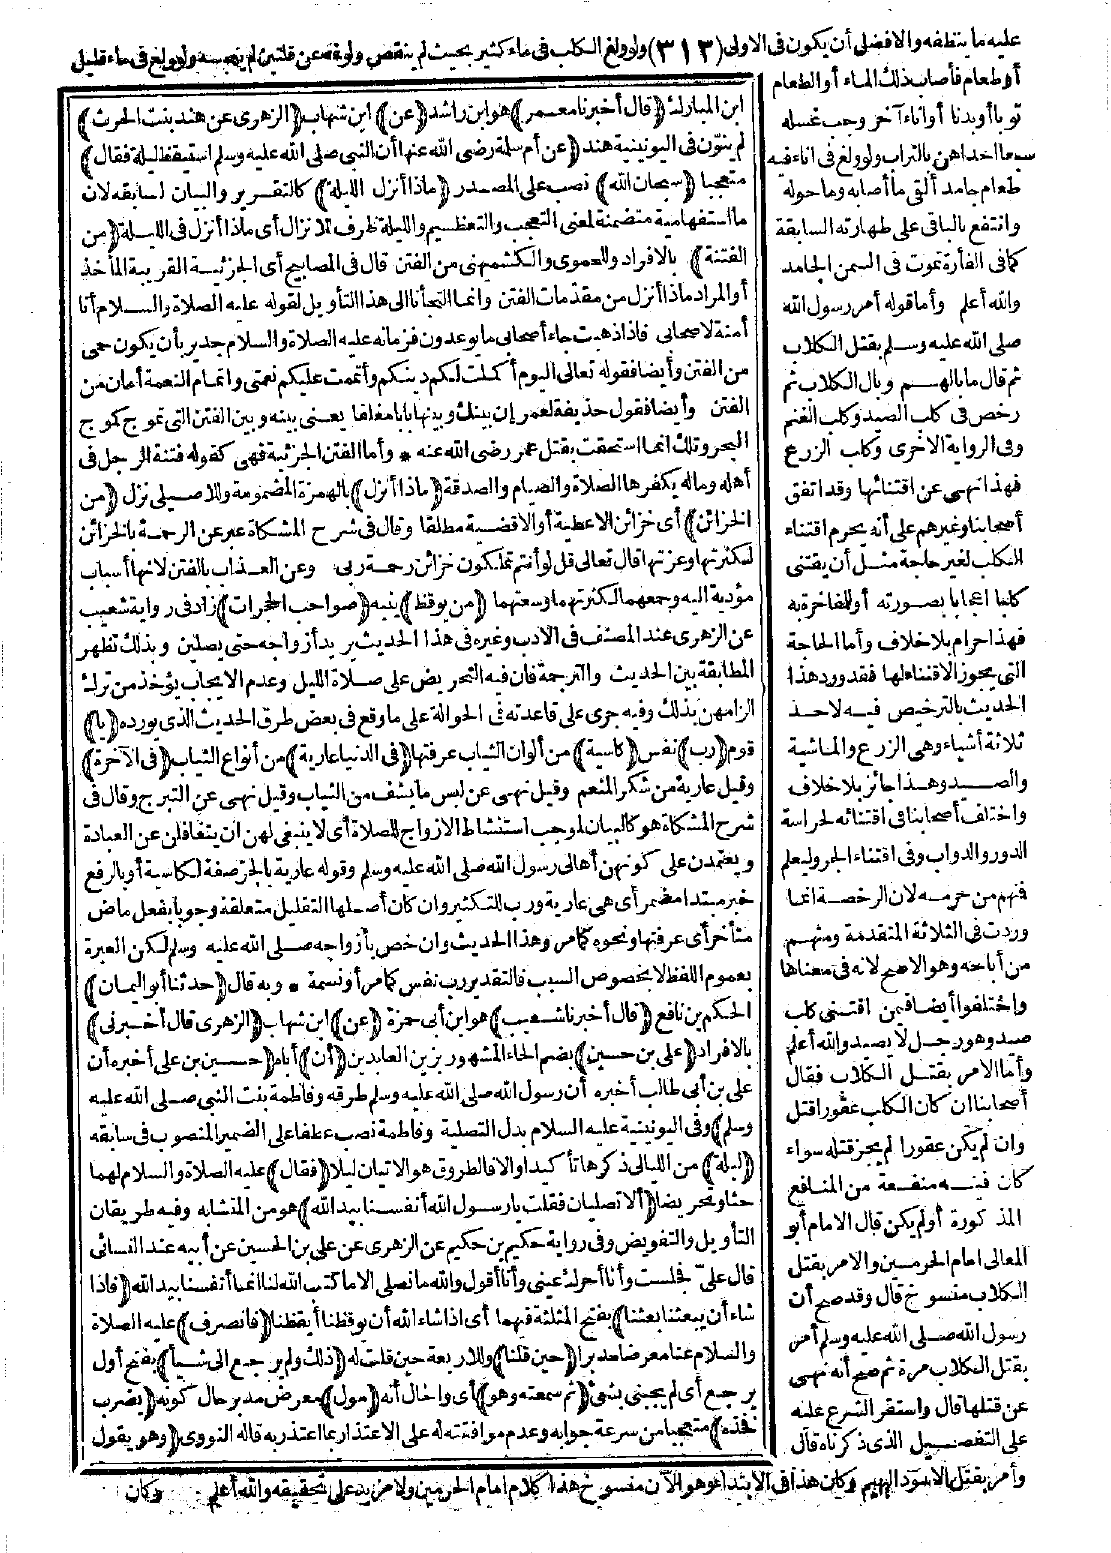 عليه ما ينظفه والافضل أن يكون في الاولى (٣١٣) ولو ولغ الكلب في ماء كثير بحيث لم ينقص ولوغه عن قلتين لم ينجسه ولو ولغ في ماء قليل
أو طعام فأصاب ذلك الماء أو الطعام
ثوبا أو بدنا أو اناء آخر وجب غسله
سبعا احداهن بالتراب ولو ولغ في اناء فيه
طعام جامد ألقي ما أصابه وما حوله
وانتفع بالباقي على طهارته السابقة
كما في الفأرة تموت في السمن الجامد
والله أعلم وأما قوله أمر رسول الله
صلى الله عليه وسلم بقتل الكلاب
ثم قال ما بالهم وبال الكلاب ثم
رخص في كلب الصيد وكلب الغنم
وفي الرواية الاخرى وكلب الزرع
فهذا نهي عن اقتنائها وقد اتفق
أصحابنا وغيرهم على أنه يحرم اقتناء
الكلب لغير حاجة مثل أن يقتني
كلبا اعجابا بصورته أو للمفاخرة به
فهذا حرام بلا خلاف وأما الحاجة
التي يجوز الاقتناء لها فقد ورد هذا
الحديث بالترخيص فيه لاحد
ثلاثة أشياء وهي الزرع والماشية
والصيد وهذا جائز بلا خلاف
واختلف أصحابنا في اقتنائه لحراسة
الدور والدواب وفي اقتناء الجرو ليعلم
فمنهم من حرمه لان الرخصة انما
وردت في الثلاثة المتقدمة ومنهم
من أباحه وهو الاصح لانه في معناها
واختلفوا أيضا فيمن اقتنى كلب
صيد وهو رجل لا يصيد والله أعلم
وأما الامر بقتل الكلاب فقال
أصحابنا ان كان الكلب عقورا قتل
وان لم يكن عقورا لم يجز قتله سواء
كان فيه منفعة من المنافع
المذكورة أو لم يكن قال الامام أبو
المعالي امام الحرمين والامر بقتل
الكلاب منسوخ قال وقد صح أن
رسول الله صلى الله عليه وسلم أمر
بقتل الكلاب مرة ثم صح أنه نهى
عن قتلها قال واستقر الشرع عليه
على التفصيل الذي ذكرناه قال
وأمر بقتل الاسود البهيم وكان هذا في الابتداء وهو الآن منسوخ هذا كلام امام الحرمين ولا مزيد على تحقيقه والله أعلم وكان
ابن المبارك (قال أخبرنا معمر) هو ابن راشد (عن) ابن شهاب (الزهري عن هند بنت الحرث)
لم ينوّن في اليونينية هند (عن أم سلمة رضي الله عنها أن النبي صلى الله عليه وسلم استيقظ ليلة فقال)
متعجبا (سبحان الله) نصب على المصدر (ماذا أنزل الليلة) كالتقرير والبيان لسابقه لان
ما استفهامية متضمنة لمعنى التعجب والتعظيم والليلة ظرف للانزال أي ماذا أنزل في الليلة (من
الفتنة) بالافراد وللحموي والكشميهني من الفتن قال في المصابيح أي الجزئية القريبة المأخذ
أو المراد ماذا أنزل من مقدمات الفتن وانما التجأنا الى هذا التأويل لقوله عليه الصلاة والسلام أنا
أمنة لاصحابي فاذا ذهبت جاء أصحابي ما يوعدون فزمانه عليه الصلاة والسلام جدير بأن يكون حمي
من الفتن وأيضا فقوله تعالى اليوم أكملت لكم دينكم وأتممت عليكم نعمتي واتمام النعمة أمان من
الفتن وأيضا فقول حذيفة لعمر إن بينك وبينها بابا مغلقا يعني بينه وبين الفتن التي تموج كموج
البحر وتلك انما استحقت بقتل عمر رضي الله عنه * وأما الفتن الجزئية فهي كقوله فتنة الرجل في
أهله وماله يكفرها الصلاة والصيام والصدقة (ماذا أنزل) بالهمزة المضمومة وللاصيلي نزل (من
الخزائن) أي خزائن الاعطية أو الاقضية مطلقا وقال في شرح المشكاة عبر عن الرحمة بالخزائن
لكثرتها وعزتها قال تعالى قل لو أنتم تملكون خزائن رحمة ربي وعن العذاب بالفتن لانها أسباب
مؤدية اليه وجمعهما لكثرتهما وسعتهما (من يوقظ) ينبه (صواحب الحجرات) زاد في رواية شعيب
عن الزهري عند المصنف في الادب وغيره في هذا الحديث يريد أزواجه حتى يصلين وبذلك تظهر
المطابقة بين الحديث والترجمة فان فيه التحريض على صلاة الليل وعدم الايجاب يؤخذ من ترك
الزامهن بذلك وفيه جرى على قاعدته في الحوالة على ما وقع في بعض طرق الحديث الذي يورده (يا)
قوم (رب) نفس (كاسية) من ألوان الثياب عرفتها (في الدنيا عارية) من أنواع الثياب (في الآخرة)
وقيل عارية من شكر المنعم وقيل نهى عن لبس ما يشف من الثياب وقيل نهى عن التبرج وقال في
شرح المشكاة هو كالبيان لموجب استنشاط الازواج للصلاة أي لا ينبغي لهن أن يتغافلن عن العبادة
ويعتمدن على كونهن أهالي رسول الله صلى الله عليه وسلم وقوله عارية بالجر صفة لكاسية أو بالرفع
خبر مبتدا مضمر أي هي عارية ورب للتكثير وان كان أصلها التقليل متعلقة وجوبا بفعل ماض
متأخر أي عرفتها ونحوه كما مر وهذا الحديث وان خص بأزواجه صلى الله عليه وسلم لكن العبرة
بعموم اللفظ لا بخصوص السبب فالتقدير رب نفس كما مر أو نسمة * وبه قال (حدثنا أبو اليمان)
الحكم بن نافع (قال أخبرنا شعيب) هو ابن أبي حمزة (عن) ابن شهاب (الزهري قال أخبرني)
بالافراد (علي بن حسين) بضم الحاء المشهور بزين العابدين (أن) أباه (حسين بن علي أخبره أن
علي بن أبي طالب أخبره أن رسول الله صلى الله عليه وسلم طرقه وفاطمة بنت النبي صلى الله عليه
وسلم) وفي اليونينية عليه السلام بدل التصلية وفاطمة نصب عطفا على الضمير المنصوب في سابقه
(ليلة) من الليالي ذكرها تأكيدا والا فالطروق هو الاتيان ليلا (فقال) عليه الصلاة والسلام لهما
حثا وتحريضا (ألا تصليان فقلت يا رسول الله أنفسنا بيد الله) هو من المتشابه وفيه طريقان
التأويل والتفويض وفي رواية حكيم بن حكيم عن الزهري عن علي بن الحسين عن أبيه عند النسائي
قال عليّ فجلست وأنا أحرك عيني وأنا أقول والله ما نصلي الا ما كتب الله لنا انما أنفسنا بيد الله (فاذا
شاء أن يبعثنا بعثنا) بفتح المثلثة فيهما أي اذا شاء الله أن يوقظنا أيقظنا (فانصرف) عليه الصلاة
والسلام عنا معرضا مدبرا (حين قلنا) وللاربعة حين قلت له (ذلك ولم يرجع الي شيأ) بفتح أول
يرجع أي لم يجبني بشئ (ثم سمعته وهو) أي والحال أنه (مول) معرض مدبر حال كونه (يضرب
فخذه) متعجبا من سرعة جوابه وعدم موافقته له على الاعتذار بما اعتذر به قاله النووي (وهو يقول